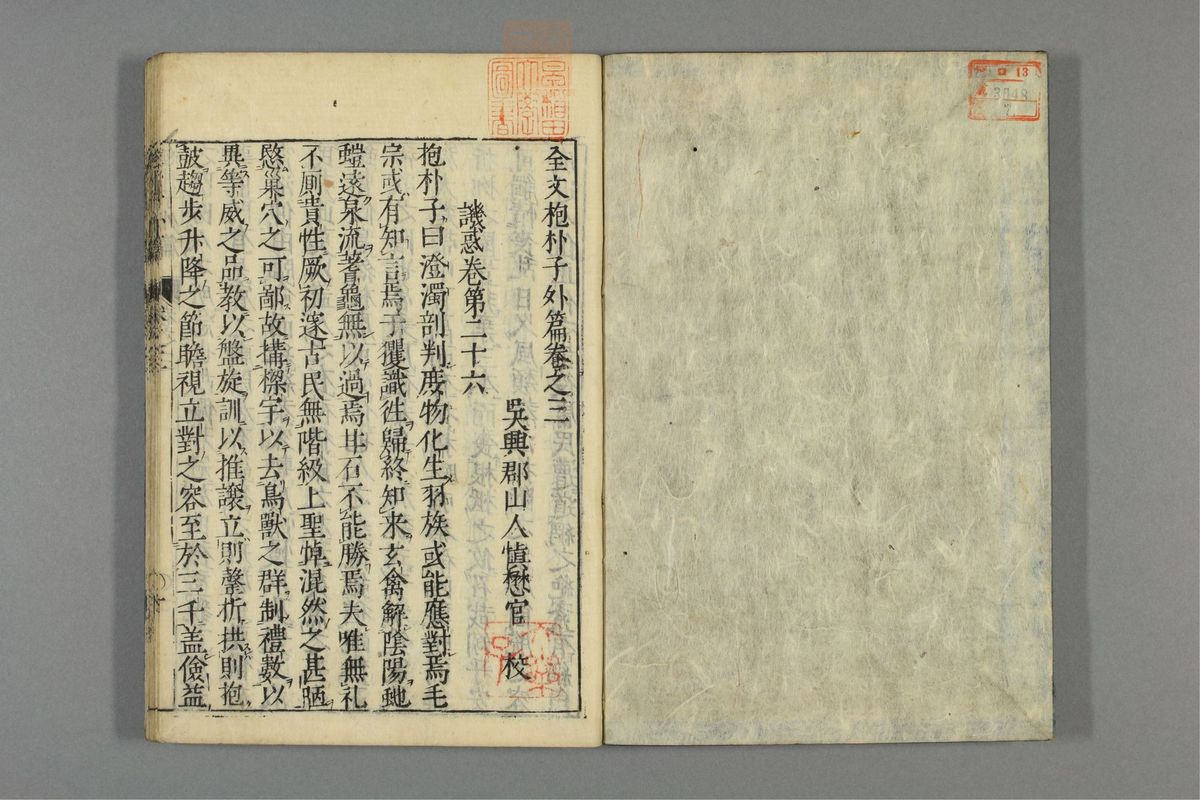 全文抱朴子外篇卷之三
吳興郡山人慎懋官 校
譏惑卷第二十六
抱朴子曰澄濁剖判庶物化生羽族或能應對焉毛
宗或有知言焉于玃識徃歸終知来玄禽解陰陽虵
螘遠泉流蓍龜無以過焉甘石不能勝焉夫唯無礼
不厠貴性厥初邃古民無階級上聖悼混然之甚陋
愍巢穴之可鄙故搆樑宇以去鳥獸之群制禮數以
異等威之品教以盤旋訓以推譲立則磬折拱則抱
鼓趨步升降之節瞻視立對之容至於三千盖儉益
13
3048
7